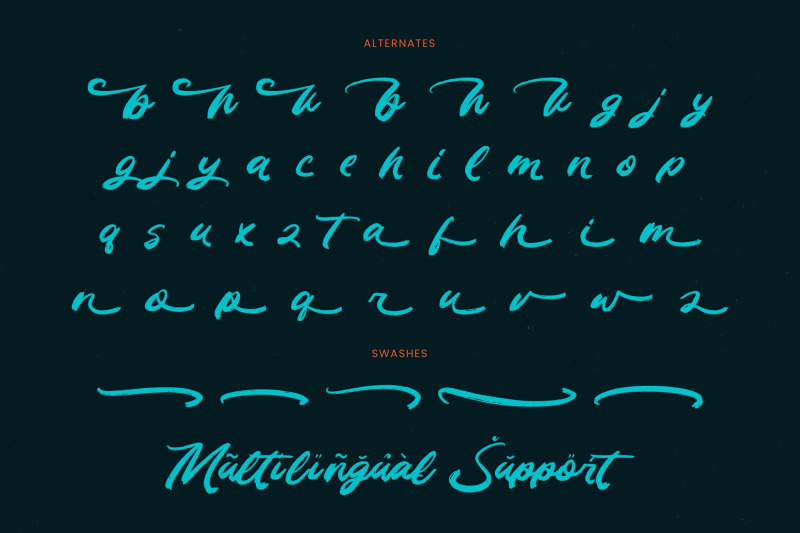 ALTERNATES
b h k b h k g j y
g j y a c e h i l m n o p
q s u x z T a f h i m
n o p q r u v w z
SWASHES
Mũltĩlïñğůàł Šŭppöřt